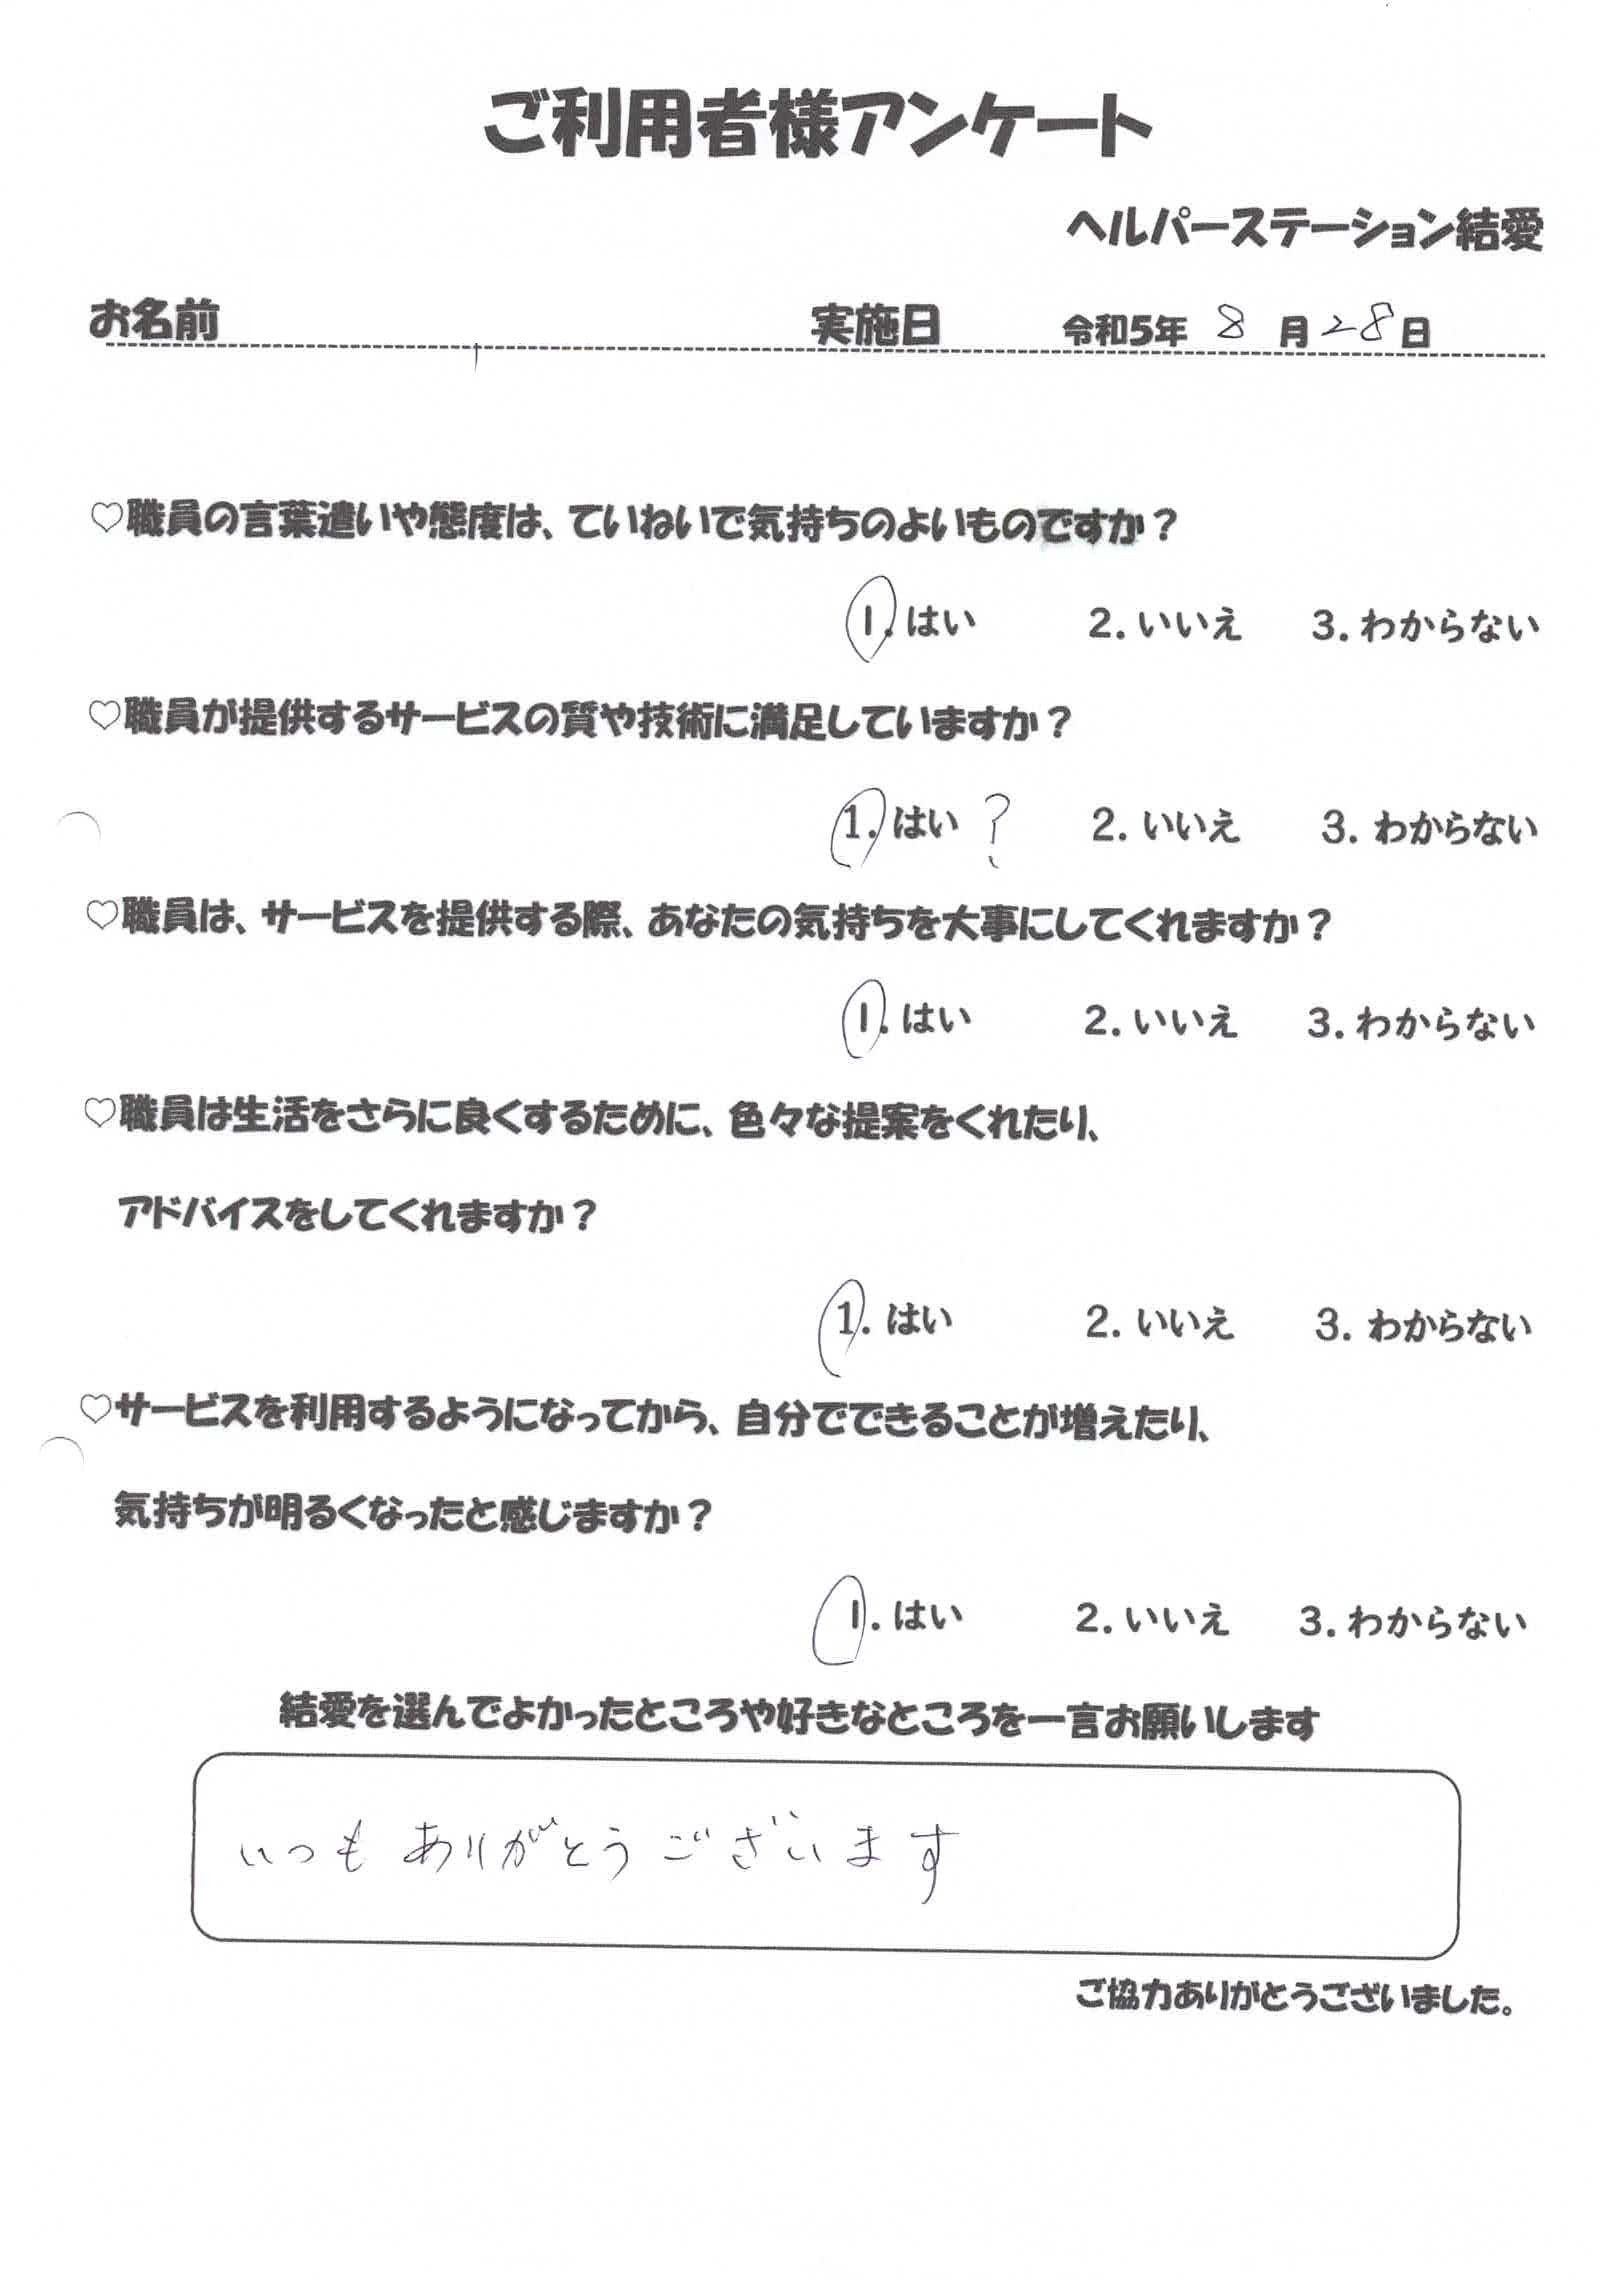 ご利用者様アンケート
ヘルパーステーション結愛
お名前 実施日 令和5年 8 月 28 日
♡職員の言葉遣いや態度は、ていねいで気持ちのよいものですか？
1. はい 2. いいえ 3. わからない
♡職員が提供するサービスの質や技術に満足していますか？
1. はい ? 2. いいえ 3. わからない
♡職員は、サービスを提供する際、あなたの気持ちを大事にしてくれますか？
1. はい 2. いいえ 3. わからない
♡職員は生活をさらに良くするために、色々な提案をくれたり、
アドバイスをしてくれますか？
1. はい 2. いいえ 3. わからない
♡サービスを利用するようになってから、自分でできることが増えたり、
気持ちが明るくなったと感じますか？
1. はい 2. いいえ 3. わからない
結愛を選んでよかったところや好きなところを一言お願いします
いつも ありがとうございます
ご協力ありがとうございました。